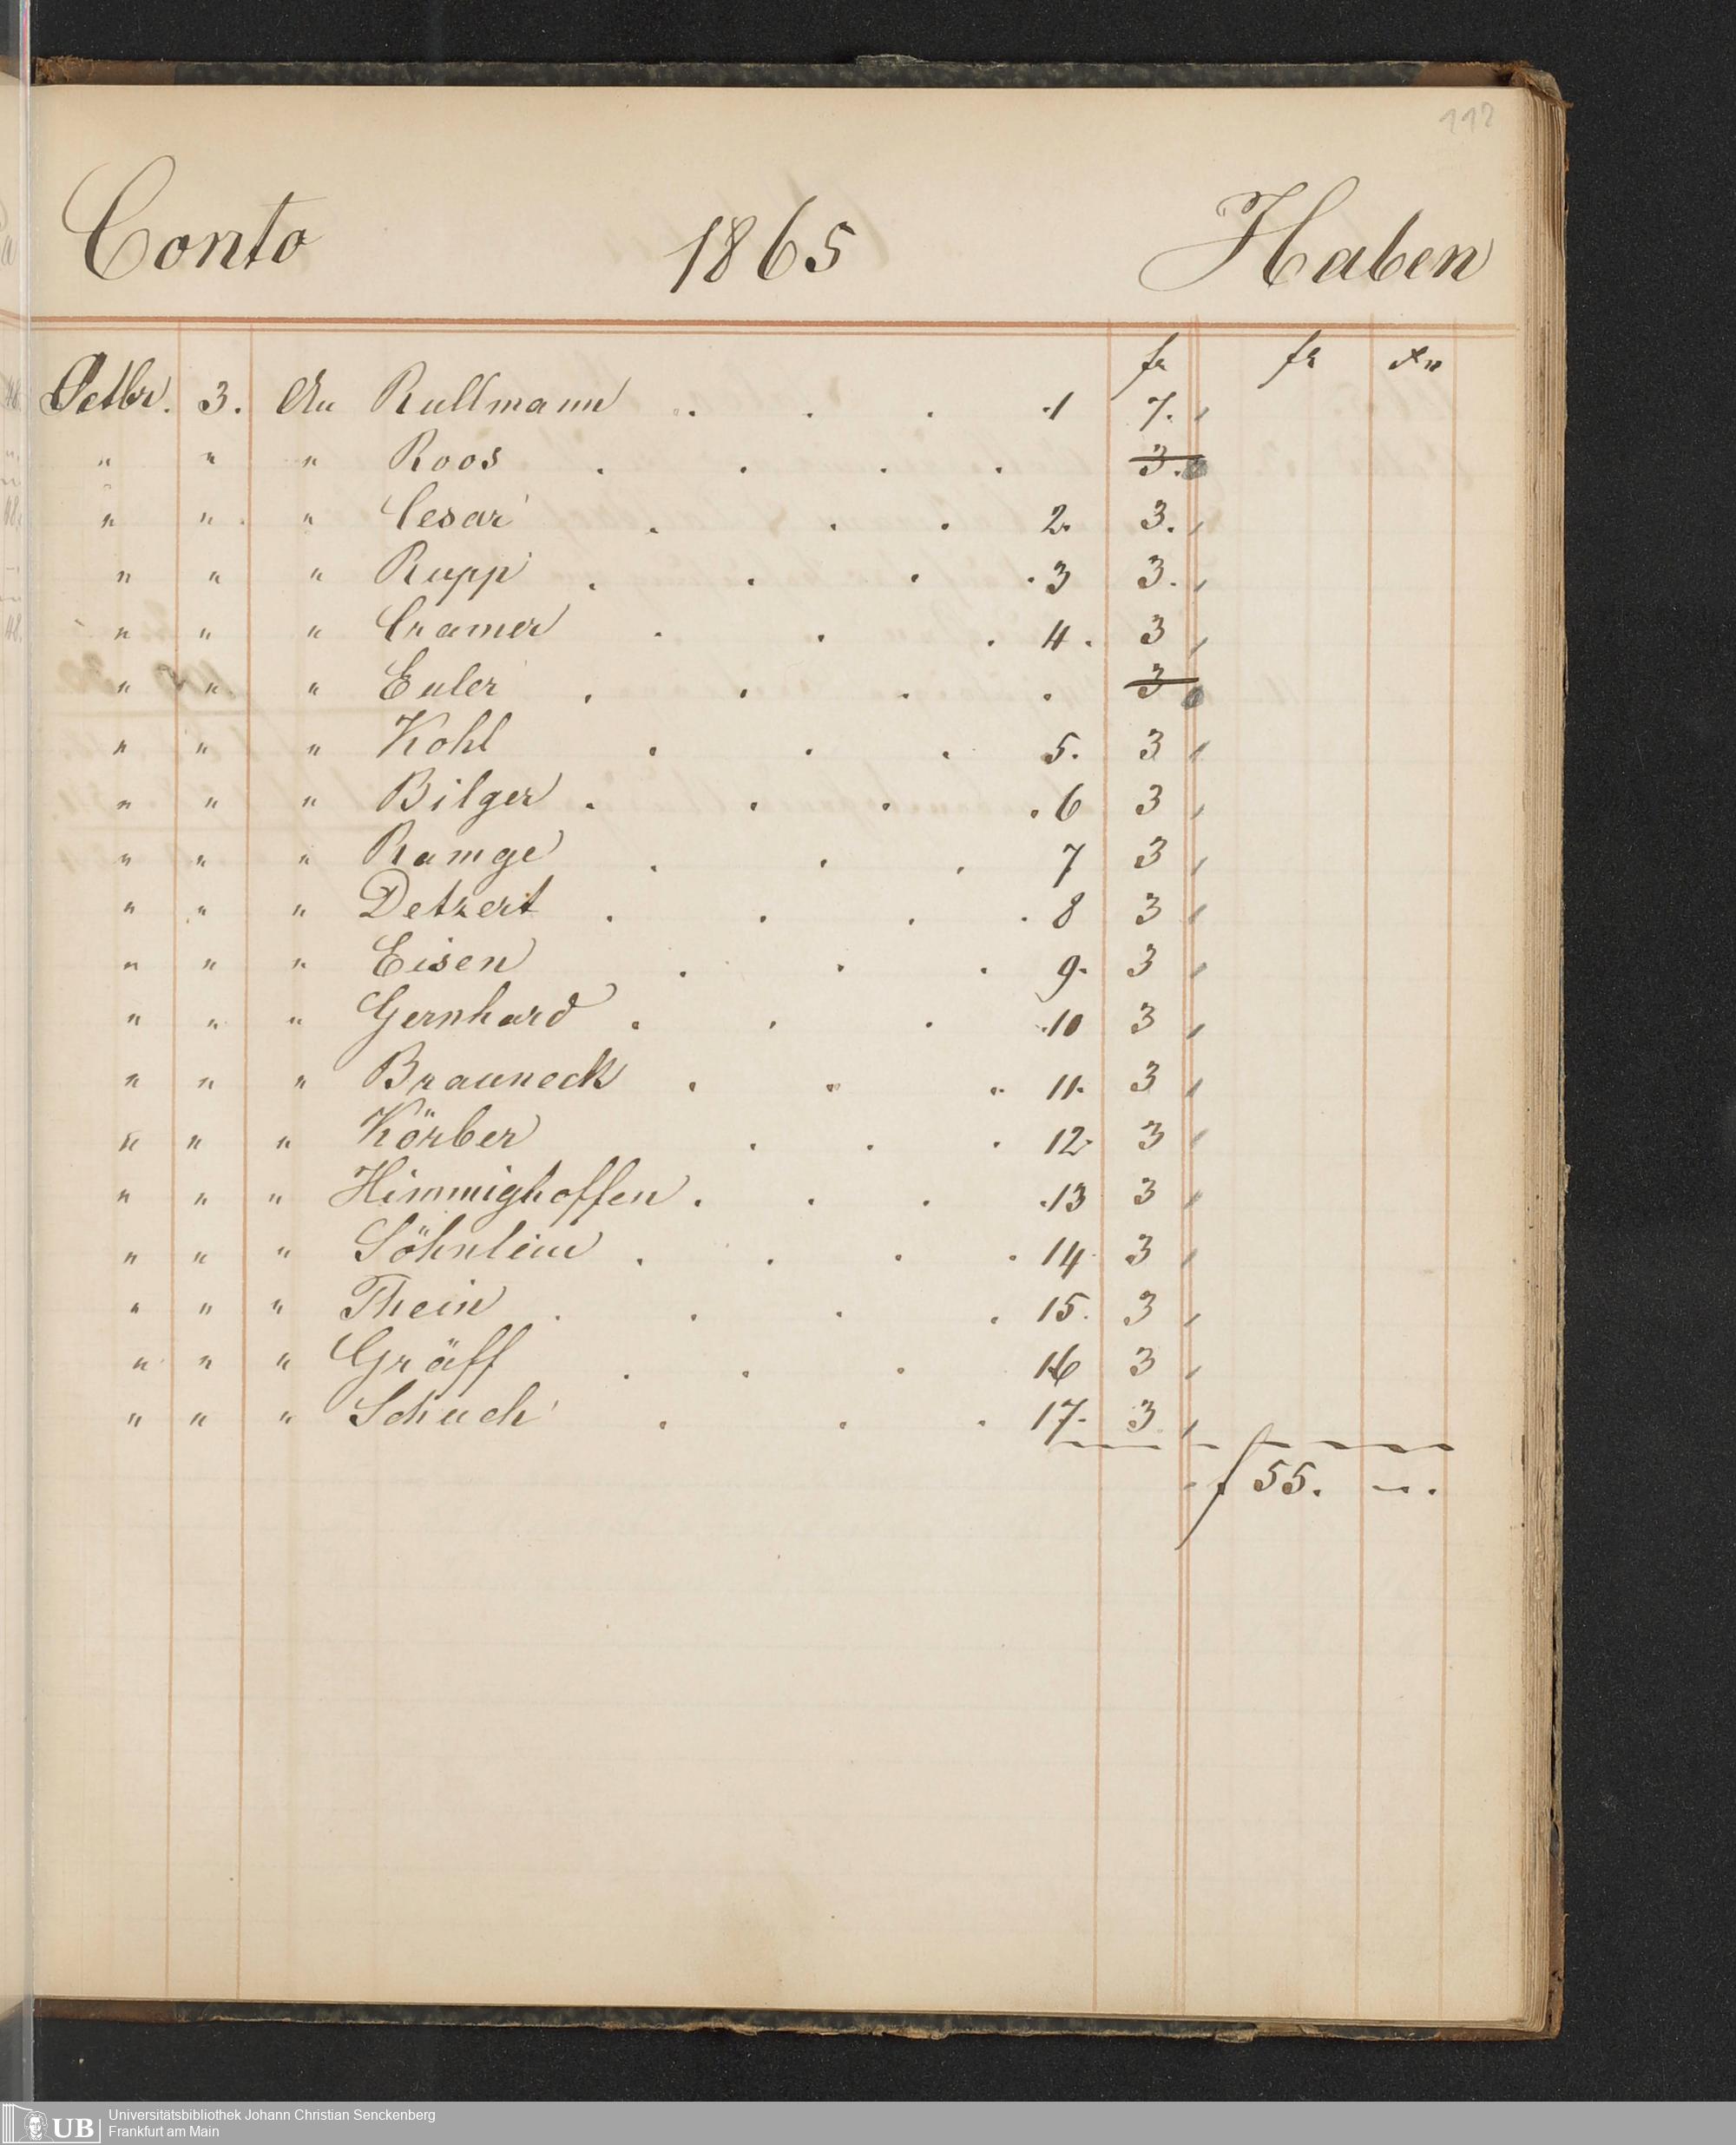 112
Conto 1865 Haben
fr fr xr
Octbr. 3. An Rullmann . . . 1 7.
" " " Roos . . . . 3.
" " " Cesar . . . 2. 3.
" " " Rupp . . . . 3 3.
" " " Cramer . . . 4. 3
" " " Euler . . . . 3
" " " Kohl . . . 5. 3
" " " Bilger . . . . 6 3
" " " Ramge . . . 7 3
" " " Detzert . . . . 8 3
" " " Eisen . . . 9. 3
" " " Gernhard . . . .10 3
" " " Brauneck . . . 11. 3
" " " Körber . . . 12. 3
" " " Himmighoffen . . . .13 3
" " " Söhnlein . . . . 14 3
" " " Thein . . . . 15. 3
" " " Gräff . . . 16 3
" " " Schuch . . . 17. 3
f 55. —.
UB Universitätsbibliothek Johann Christian Senckenberg
Frankfurt am Main